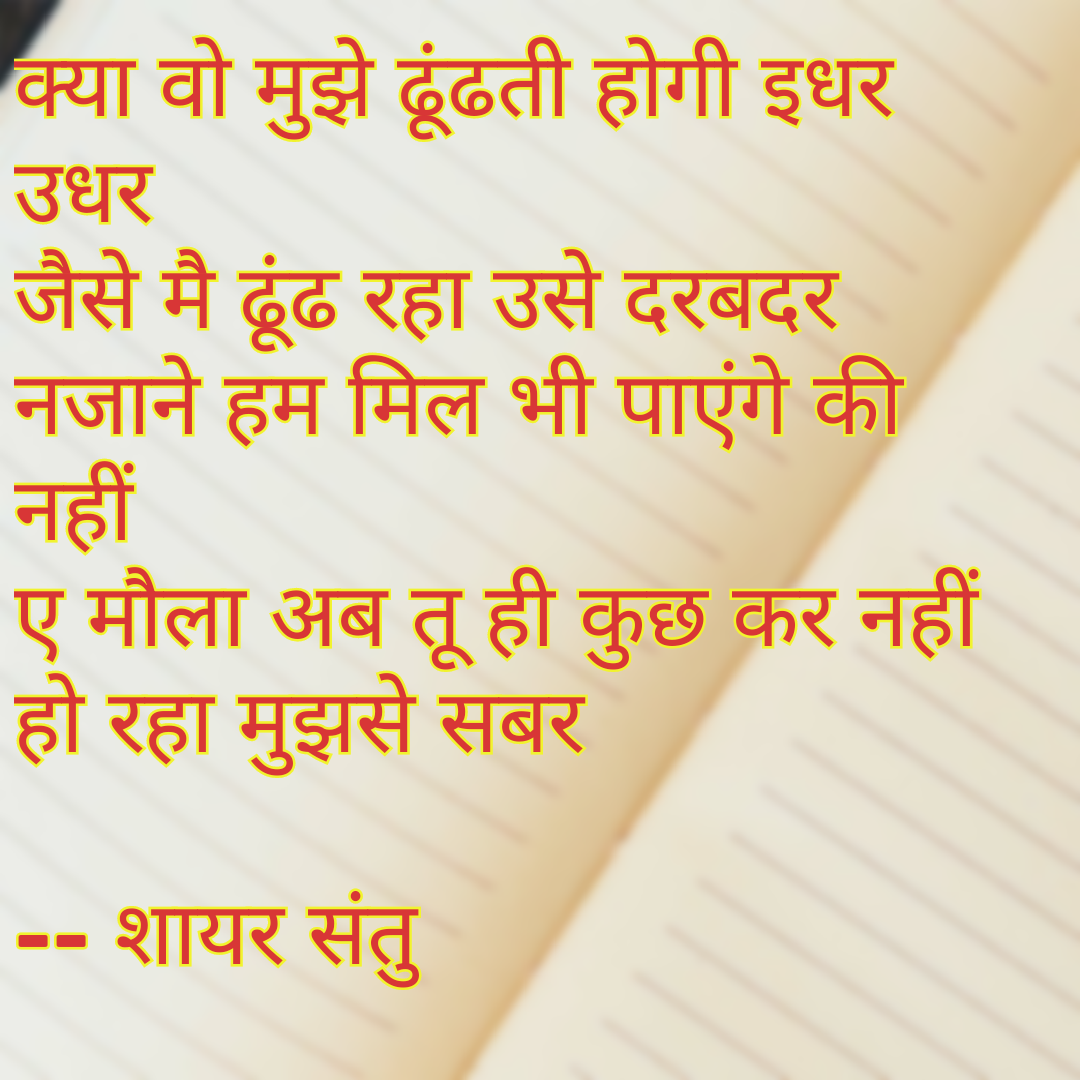 क्या वो मुझे ढूंढती होगी इधर
उधर
जैसे मै ढूंढ रहा उसे दरबदर
नजाने हम मिल भी पाएंगे की
नहीं
ए मौला अब तू ही कुछ कर नहीं
हो रहा मुझसे सबर
-- शायर संतु